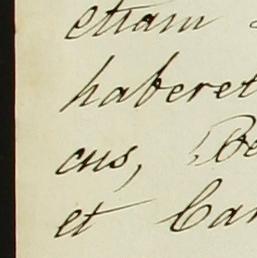 etiam
haberet
cus, Be
et Car